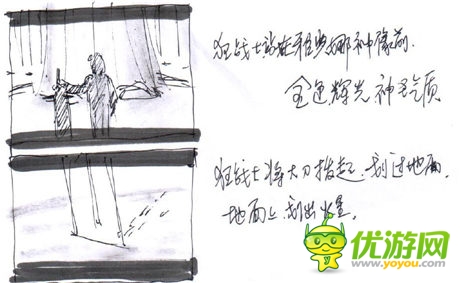 狂战士站在雅典娜神像前.
金色辉光神圣气质
狂战士将大刀拔起.划过地面.
地面上划出火星.
优游网
www.yoyou.com